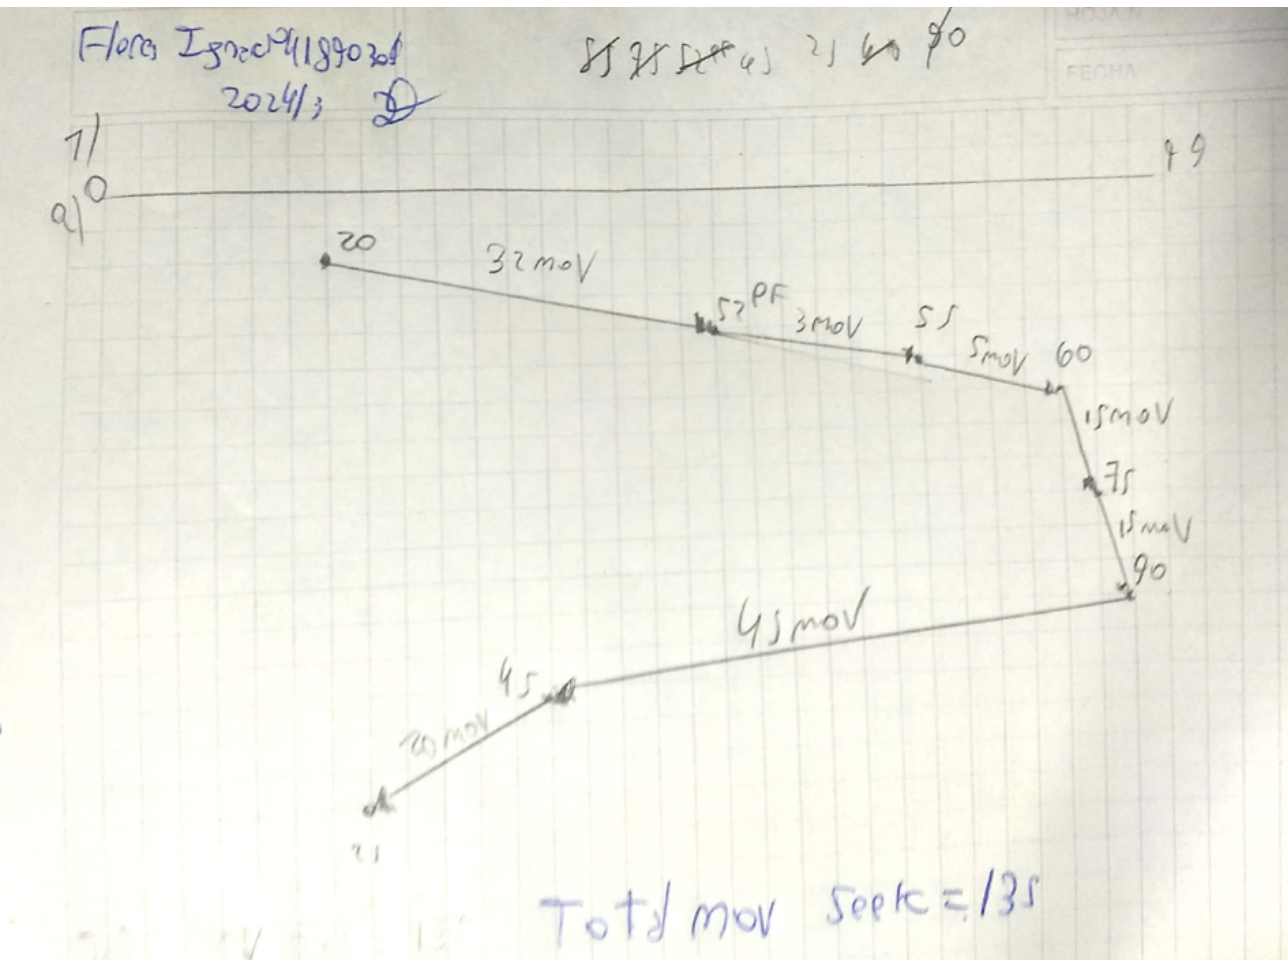 HOJA N
FECHA
Flores Ignacio 41890301
2024/3
55 75 52PF 45 25 60 90
1)
a) 0 99
20
32 mov
52 PF
3 mov
55
5 mov
60
15 mov
75
15 mov
90
45 mov
45
20 mov
25
Total mov seek = 135